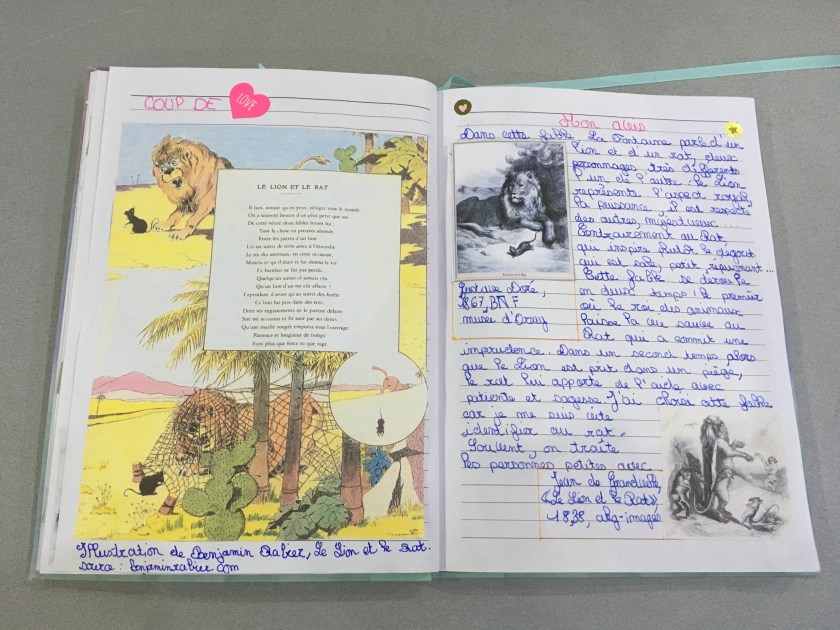 COUP DE LOVE
LE LION ET LE RAT
Il faut, autant qu'on peut, obliger tout le monde
On a souvent besoin d'un plus petit que soi.
De cette vérité deux fables feront foi,
Tant la chose en preuves abonde.
Entre les pattes d'un lion
Un rat sortit de terre assez à l'étourdie
Le roi des animaux, en cette occasion,
Montra ce qu'il était et lui donna la vie
Ce bienfait ne fut pas perdu.
Quelqu'un aurait-il jamais cru
Qu'un lion d'un rat eût affaire ?
Cependant il avint qu'au sortir des forêts
Ce lion fut pris dans des rets,
Dont ses rugissements ne le purent défaire
Sire rat accourut et fit tant par ses dents
Qu'une maille rongée emporta tout l'ouvrage
Patience et longueur de temps
Font plus que force ni que rage.
Illustration de Benjamin Rabier, Le Lion et le Rat.
source : benjaminrabier.com
Mon avis
Dans cette fable, La Fontaine parle d'un
lion et d'un rat, deux
personnages très différents
l'un de l'autre : le Lion
représente l'aspect royal,
la puissance, il est respecté
des autres, majestueux ...
Contrairement au Rat,
qui inspire plutôt le dégoût
qui est sale, petit, repoussant...
Cette fable se déroule
en deux temps : le premier
où le roi des animaux
laisse la vie sauve au
Rat qui a commit une
imprudence. Dans un second temps alors
que le Lion est prit dans un piège,
le rat lui apporte de l'aide avec
patiente et sagesse. J'ai choisi cette fable
car je me suis
identifier au rat.
Souvent, on traite
les personnes petites avec
Gustave Doré,
1867, BNF
musée d'Orsay
Jean de Grandville,
"Le Lion et le Rat",
1838, akg-images